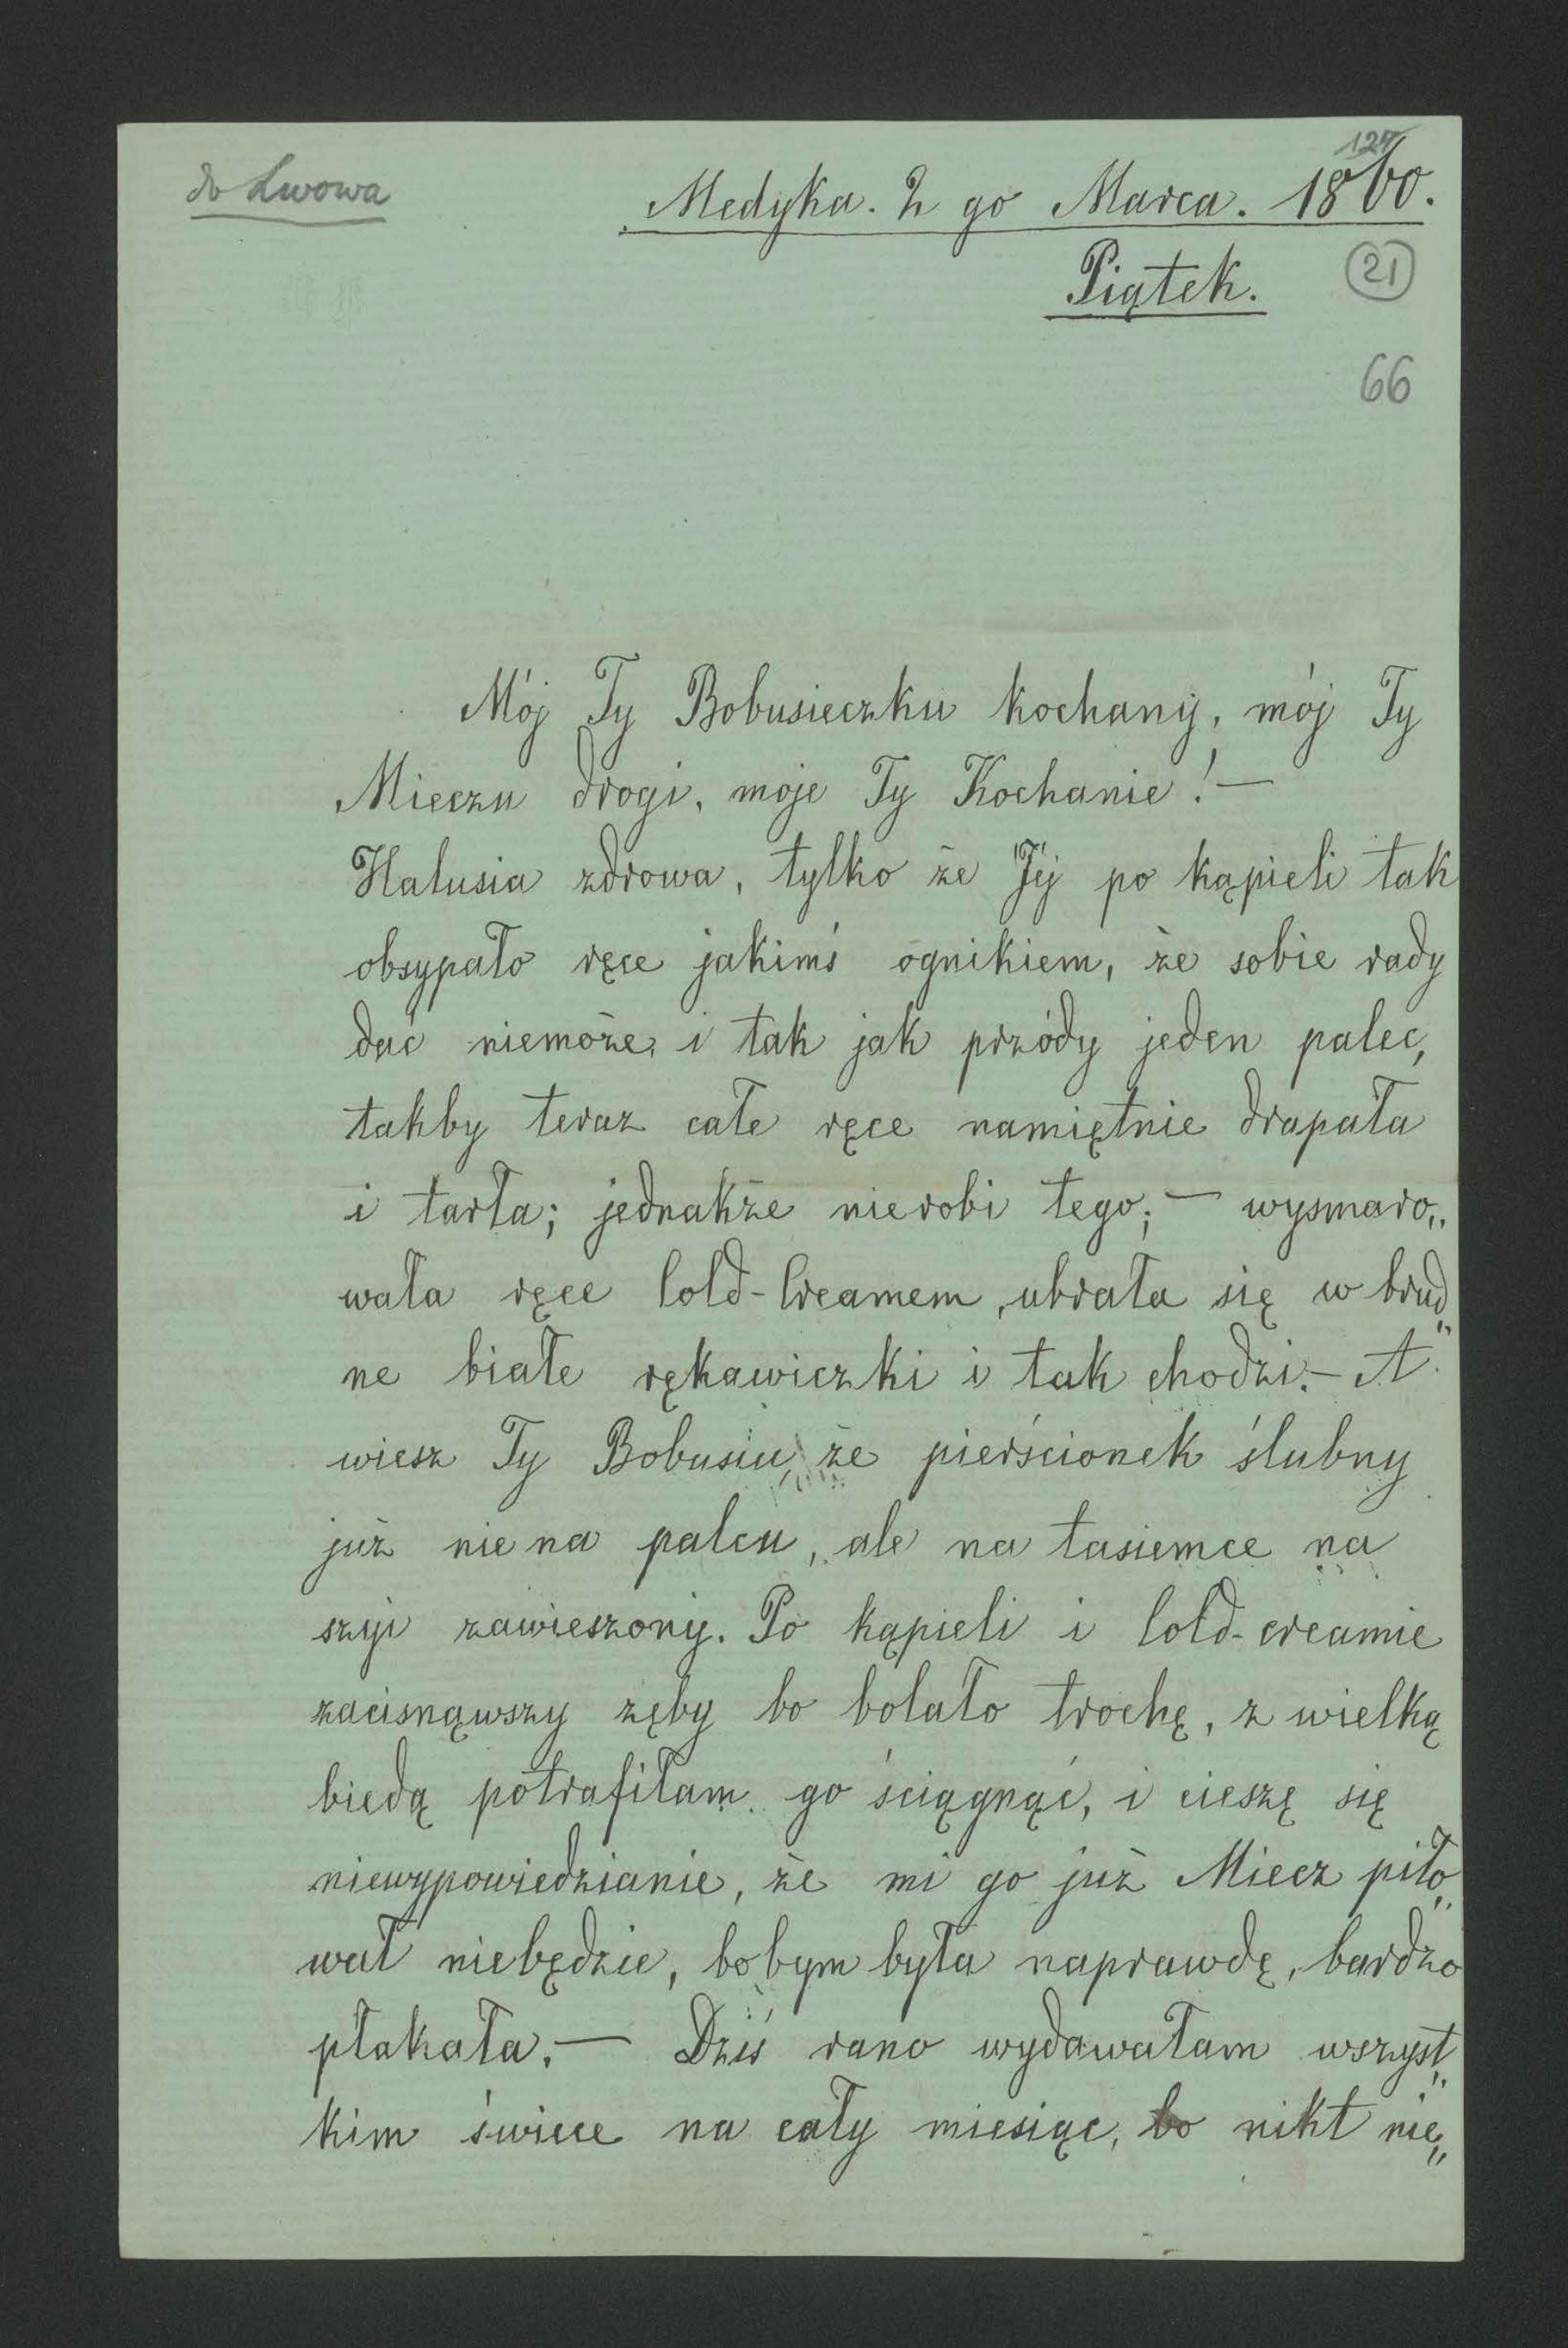 do Lwowa
127
Medyka. 2 go Marca. 1860.
Piątek.
21
66
Mój Ty Bobusieczku kochany, mój Ty
Mieczu drogi, moje Ty Kochanie! —
Halusia zdrowa, tylko że Jéj po kąpieli tak
obsypało ręce jakimś ognikiem, że sobie rady
dać niemoże, i tak jak przódy jeden palec,
takby teraz całe ręce namiętnie drapała
i tarła; jednakże nierobi tego; — wysmaro„
wała ręce Cold-Creamem, ubrała się w brud„
ne białe rękawiczki i tak chodzi. — A
wiesz Ty Bobusiu, że pierścionek ślubny
już nie na palcu, ale na tasiemce na
szyi zawieszony. Po kąpieli i Cold-creamie
zacisnąwszy zęby bo bolało trochę, z wielką
biedą potrafiłam go ściągnąć, i cieszę się
niewypowiedzianie, że mi go już Miecz piło„
wał niebędzie, bobym była naprawdę, bardzo
płakała. — Dziś rano wydawałam wszyst„
kim świece na cały miesiąc, bo nikt nie„